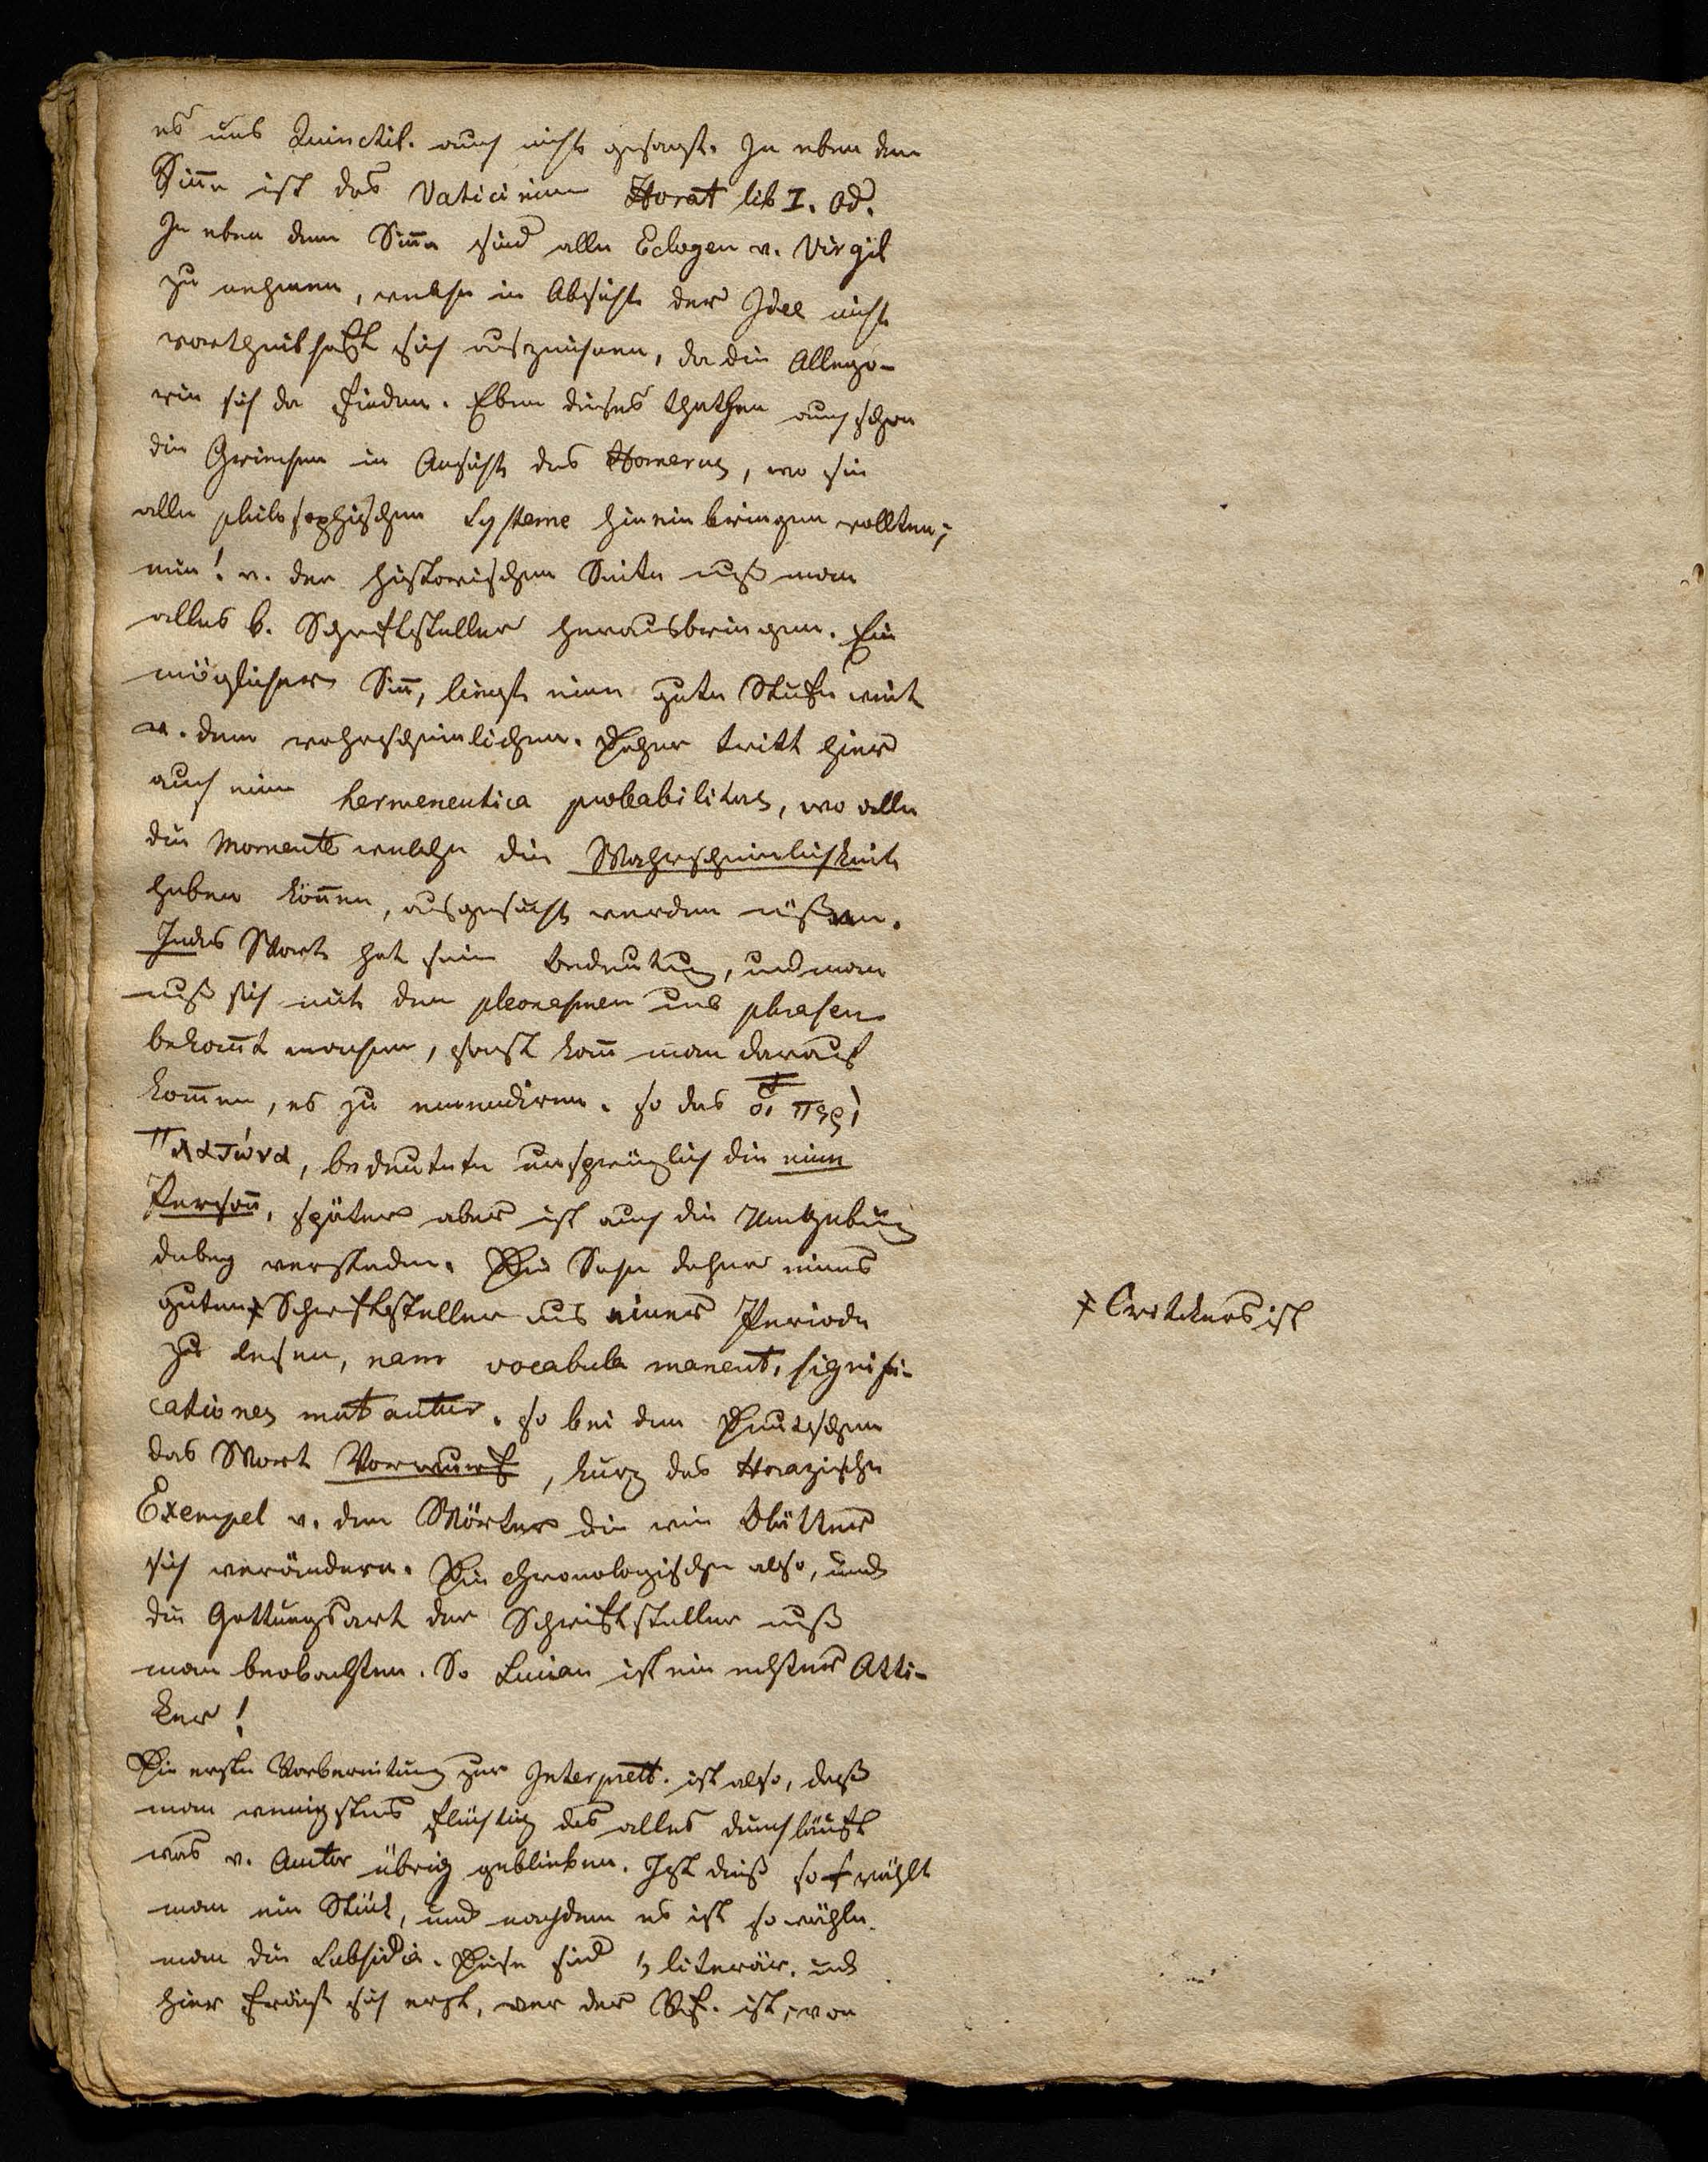 es uns Quinctil. auch nicht gesagt. In eben dem
Sinne ist das Vaticinium Horat lib I. Od.
In eben dem Sinn sind alle Eclogen v. Virgil
zu nehmen, welche in Absicht der Idee nicht
vortheilhaft sich auszeichnen, da die Allego-
rie sich da finden. Eben dieses thathen auch schon
die Griechen in Ansicht des Homerus, wo sie
alle philosophischen Systeme hineinbringen wollten;
nein! v. der historischen Seite muß man
alles b. Schriftsteller herausbringen. Ein
möglicher Sinn, liegt eine gute Stufe weit
v. dem wahrscheinlichen. Daher tritt hier
auch eine hermeneutica probabilitas, wo alle
die Momente welche die Wahrscheinlichkeit
haben können, aufgesucht werden müßen.
Jedes Wort hat seine Bedeutung, und man
muß sich mit den pleonasmen und phrasen
bekannt machen, sonst kann man darauf
kommen, es zu emendiren. so das οἱ περὶ
Πλατώνα, bedeutete ursprünglich die eine
Person, später aber ist auch die Umgebung
dabey verstanden. Die Sache daher eines
guten ҂ Schriftsteller aus einer Periode
zu lesen, nam vocabula manent, signifi-
cationes mutantur. so bei den Deutschen
das Wort Vorwurf, kurz das Horazische
Exempel v. den Wörter die wie Blätter
sich verändern. Die chronologische also, und
die Gattungsart der Schriftsteller muß
man beobachten. So Lucian ist ein echter Atti-
ker!
Die erste Vorbereitung zur Interprett. ist also, daß
man wenigstens flüchtig das alles durchläuft
was v. Autor übrig geblieben. Ist dieß so wählt
man ein Stück, und nachdem es ist so wähle
man die Subsidia. Diese sind 1, literär. und
hier frägt sich erst, wer der Vf. ist, von
҂ Critickers ist